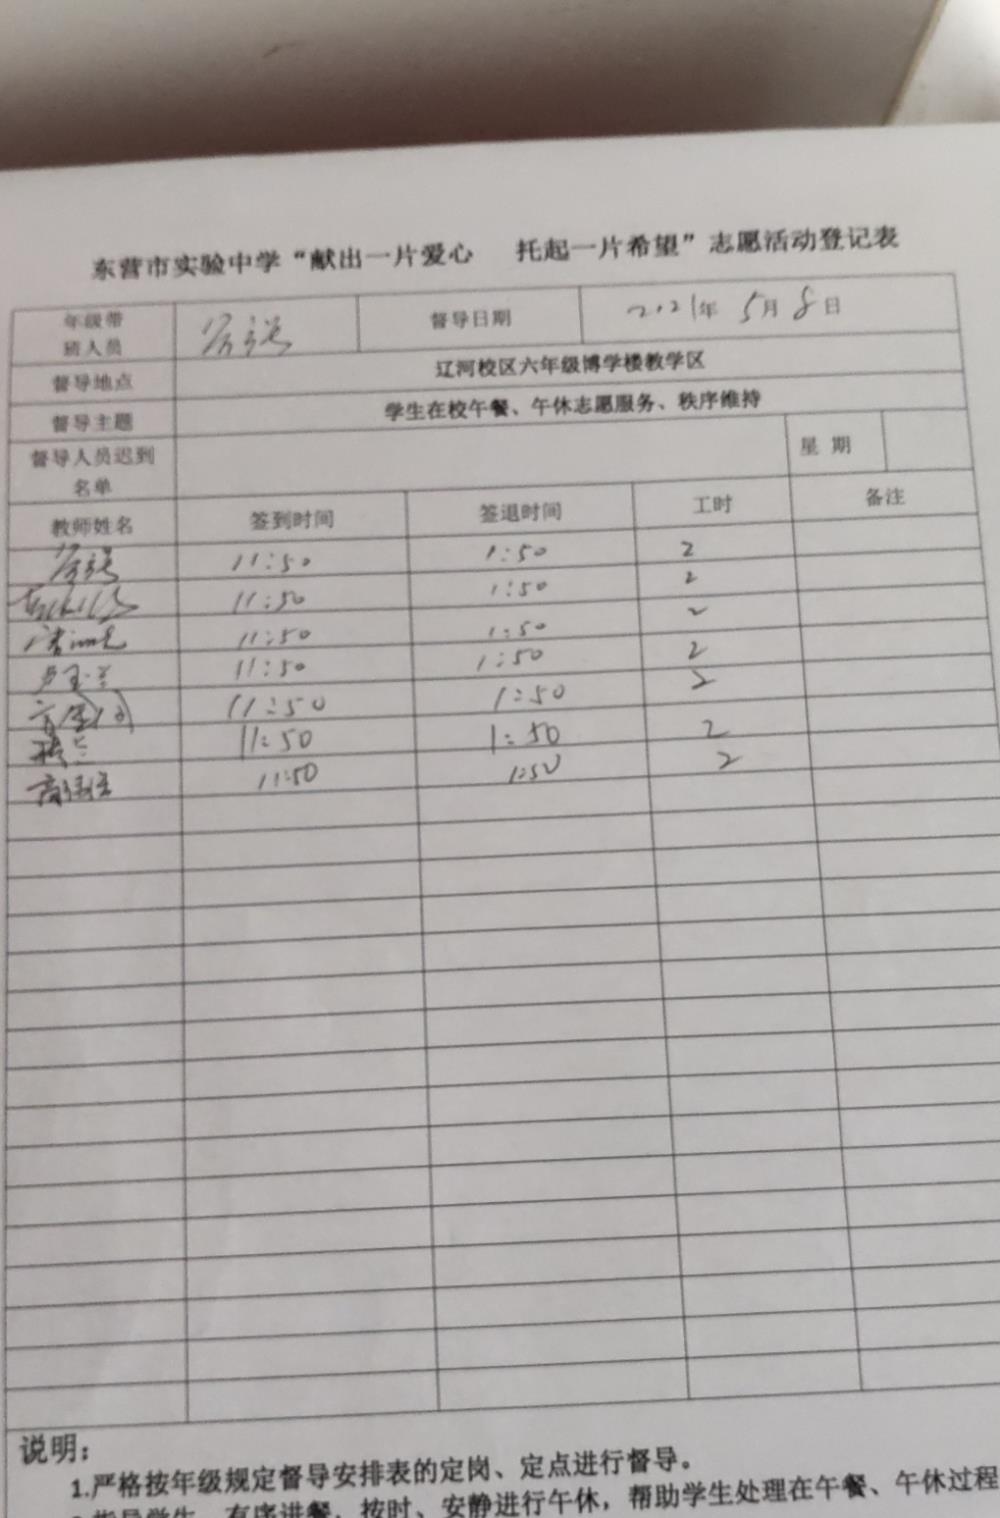 东营市实验中学“献出一片爱心 托起一片希望”志愿活动登记表
年级带班人员 督导日期 2021年 5月 8日
督导地点 辽河校区六年级博学楼教学区
督导主题 学生在校午餐、午休志愿服务、秩序维持
督导人员迟到名单 星 期
教师姓名 签到时间 签退时间 工时 备注
11:50 1:50 2
11:50 1:50 2
11:50 1:50 2
卢玉兰 11:50 1:50 2
11:50 1:50 2
11:50 1:50 2
11:50 1:50 2
说明：
1.严格按年级规定督导安排表的定岗、定点进行督导。
指导学生 有序进餐，按时、安静进行午休，帮助学生处理在午餐、午休过程